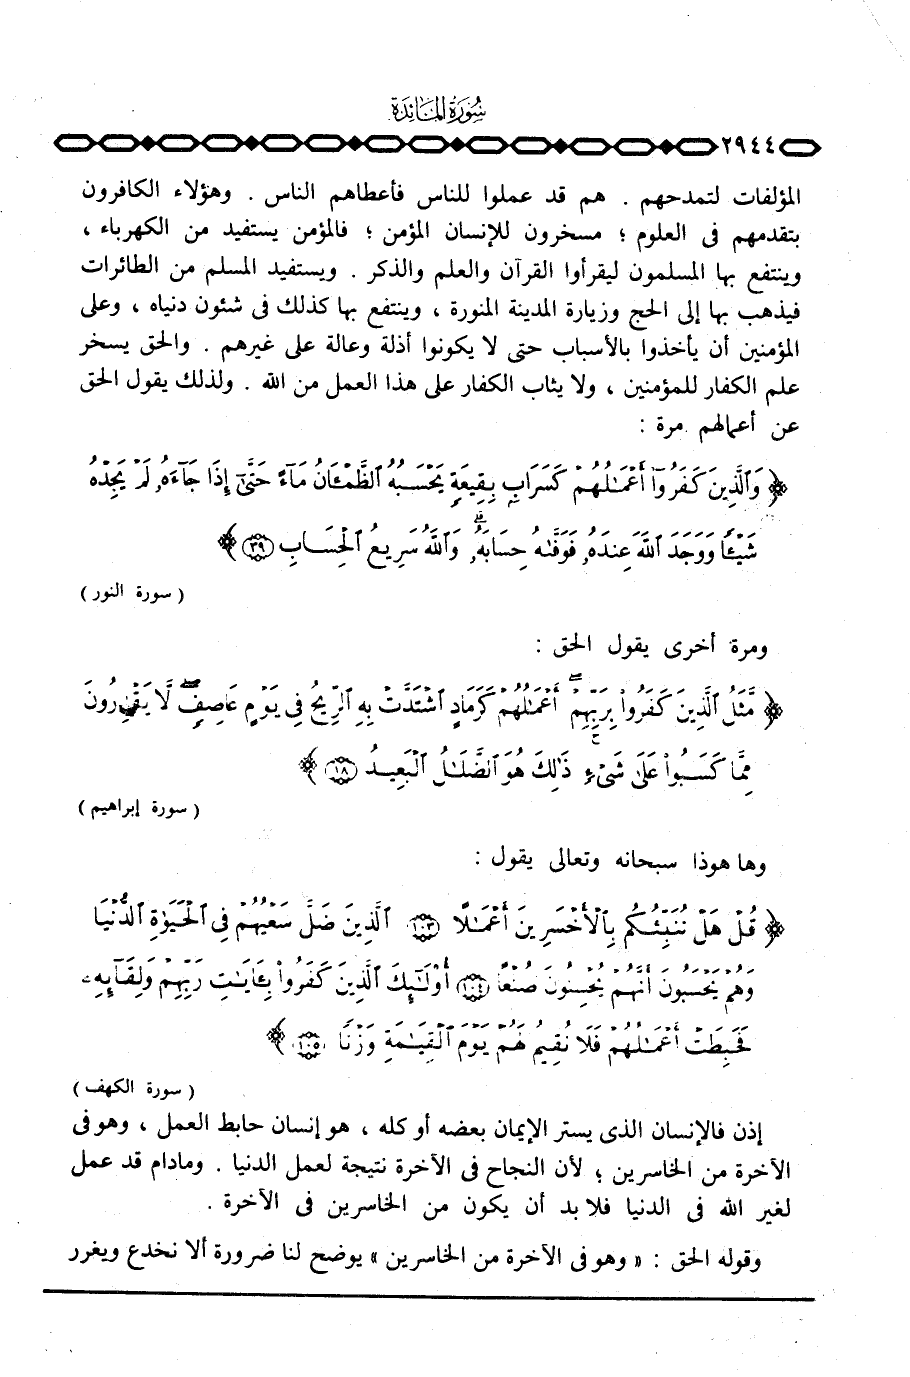 سُورَةُ المَائِدَة
٢٩٤٤
المؤلفات لتمدحهم . هم قد عملوا للناس فأعطاهم الناس . وهؤلاء الكافرون
بتقدمهم فى العلوم ؛ مسخرون للإنسان المؤمن ؛ فالمؤمن يستفيد من الكهرباء ،
وينتفع بها المسلمون ليقرأوا القرآن والعلم والذكر . ويستفيد المسلم من الطائرات
فيذهب بها إلى الحج وزيارة المدينة المنورة ، وينتفع بها كذلك فى شئون دنياه ، وعلى
المؤمنين أن يأخذوا بالأسباب حتى لا يكونوا أذلة وعالة على غيرهم . والحق يسخر
علم الكفار للمؤمنين ، ولا يثاب الكفار على هذا العمل من الله . ولذلك يقول الحق
عن أعمالهم مرة :
﴿ وَالَّذِينَ كَفَرُوٓا۟ أَعْمَـٰلُهُمْ كَسَرَابٍۭ بِقِيعَةٍ يَحْسَبُهُ ٱلظَّمْـَٔانُ مَآءً حَتَّىٰٓ إِذَا جَآءَهُۥ لَمْ يَجِدْهُ
شَيْـًٔا وَوَجَدَ ٱللَّهَ عِندَهُۥ فَوَفَّىٰهُ حِسَابَهُۥ ۗ وَٱللَّهُ سَرِيعُ ٱلْحِسَابِ ٣٩ ﴾
( سورة النور )
ومرة أخرى يقول الحق :
﴿ مَّثَلُ ٱلَّذِينَ كَفَرُوا۟ بِرَبِّهِمْ ۖ أَعْمَـٰلُهُمْ كَرَمَادٍ ٱشْتَدَّتْ بِهِ ٱلرِّيحُ فِى يَوْمٍ عَاصِفٍ ۖ لَّا يَقْدِرُونَ
مِمَّا كَسَبُوا۟ عَلَىٰ شَىْءٍ ۚ ذَٰلِكَ هُوَ ٱلضَّلَـٰلُ ٱلْبَعِيدُ ١٨ ﴾
( سورة إبراهيم )
وها هوذا سبحانه وتعالى يقول :
﴿ قُلْ هَلْ نُنَبِّئُكُم بِٱلْأَخْسَرِينَ أَعْمَـٰلًا ١٠٣ ٱلَّذِينَ ضَلَّ سَعْيُهُمْ فِى ٱلْحَيَوٰةِ ٱلدُّنْيَا
وَهُمْ يَحْسَبُونَ أَنَّهُمْ يُحْسِنُونَ صُنْعًا ١٠٤ أُو۟لَـٰٓئِكَ ٱلَّذِينَ كَفَرُوا۟ بِـَٔايَـٰتِ رَبِّهِمْ وَلِقَآئِهِۦ
فَحَبِطَتْ أَعْمَـٰلُهُمْ فَلَا نُقِيمُ لَهُمْ يَوْمَ ٱلْقِيَـٰمَةِ وَزْنًا ١٠٥ ﴾
( سورة الكهف )
إذن فالإنسان الذى يستر الإيمان بعضه أو كله ، هو إنسان حابط العمل ، وهو فى
الآخرة من الخاسرين ؛ لأن النجاح فى الآخرة نتيجة لعمل الدنيا . ومادام قد عمل
لغير الله فى الدنيا فلا بد أن يكون من الخاسرين فى الآخرة .
وقوله الحق : « وهو فى الآخرة من الخاسرين » يوضح لنا ضرورة ألا نخدع ويغرر